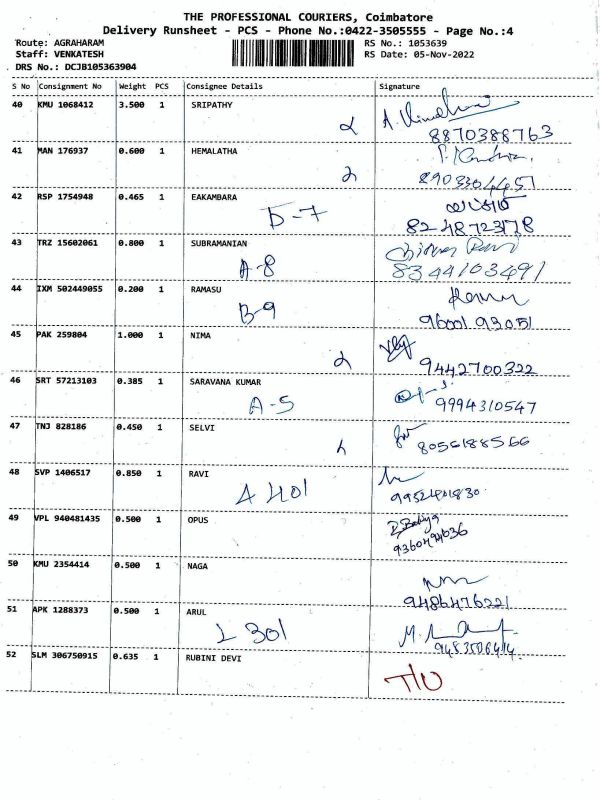 THE PROFESSIONAL COURIERS, Coimbatore
Delivery Runsheet - PCS - Phone No.:0422-3505555 - Page No.:4
Route: AGRAHARAM RS No.: 1053639
Staff: VENKATESH RS Date: 05-Nov-2022
DRS No.: DCJB105363904
S No Consignment No Weight PCS Consignee Details Signature
40 KMU 1068412 3.500 1 SRIPATHY
8870388763
41 MAN 176937 0.600 1 HEMALATHA
8903304457
42 RSP 1754948 0.465 1 EAKAMBARA
D-7
8248723178
43 TRZ 15602061 0.800 1 SUBRAMANIAN
A-8 8344103491
44 IXM 502449055 0.200 1 RAMASU
B-9
96001 93051
45 PAK 259804 1.000 1 NIMA
9442700322
46 SRT 57213103 0.385 1 SARAVANA KUMAR
A-5 9994310547
47 TNJ 828186 0.450 1 SELVI
8056188566
48 SVP 1406517 0.850 1 RAVI
A 401
9952401830
49 VPL 940481435 0.500 1 OPUS
9360494636
50 KMU 2354414 0.500 1 NAGA
9486476221
51 APK 1288373 0.500 1 ARUL
L 301
52 SLM 306750915 0.635 1 RUBINI DEVI
T/U